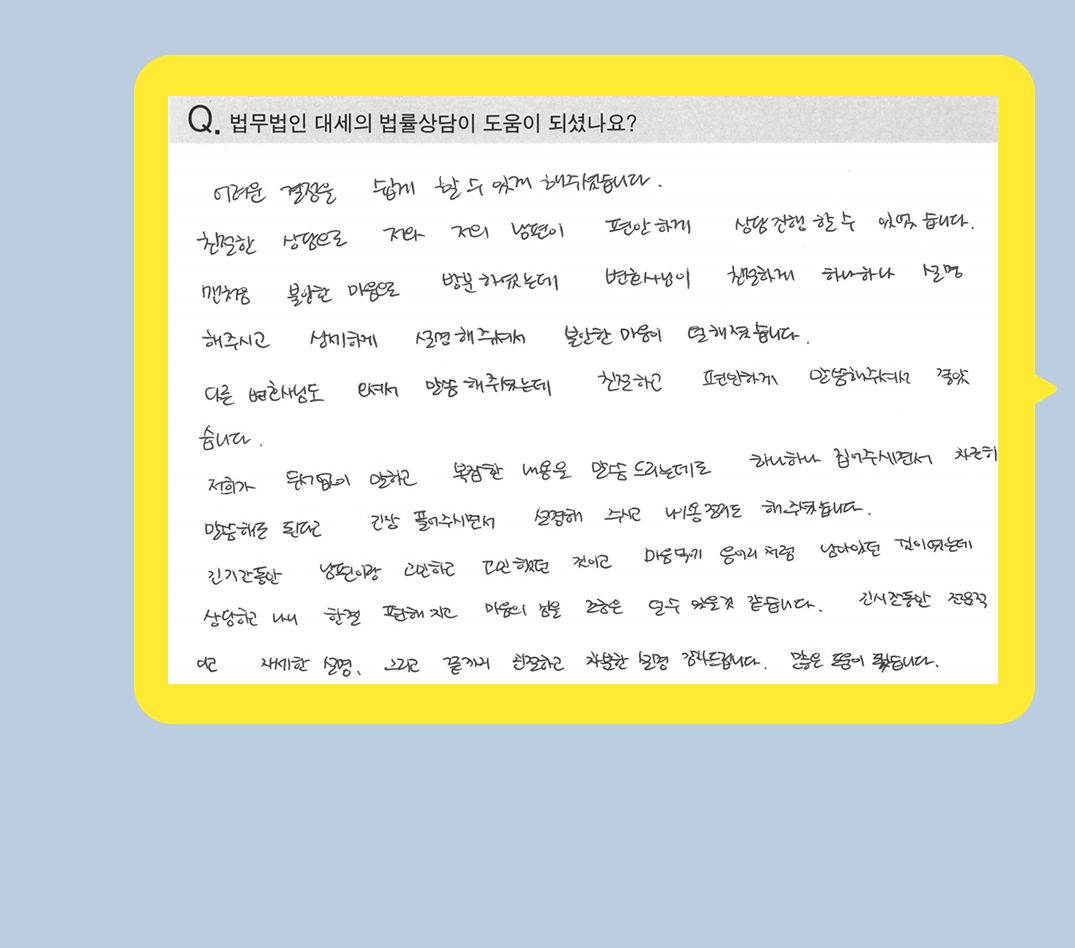 Q. 법무법인 대세의 법률상담이 도움이 되셨나요?
어려운 결정을 쉽게 할 수 있게 해주셨습니다.
친절한 상담으로 저와 저의 남편이 편안하게 상담진행 할 수 있었습니다.
맨처음 불안한 마음으로 방문하였는데 변호사님이 친절하게 하나하나 설명
해주시고 상세하게 설명해주셔서 불안한 마음이 덜해졌습니다.
다른 변호사님도 오셔서 말씀해주셨는데 친절하고 편안하게 말씀해주셔서 좋았
습니다.
저희가 두서없이 말하고 복잡한 내용을 말씀드리는데도 하나하나 집어주시면서 차근히
말씀해도 된다고 긴장 풀어주시면서 설명해 주시고 내용정리도 해주셨습니다.
긴기간동안 남편이랑 고민하고 고민했던 것이고 마음속에 응어리처럼 남아있던 것이였는데
상담하고 나니 한결 편해지고 마음의 짐을 조금은 덜수 있을것 같습니다. 긴시간동안
자세한 설명, 그리고 끝까지 친절하고 차분한 설명 감사드립니다. 많은 도움이 됐습니다.